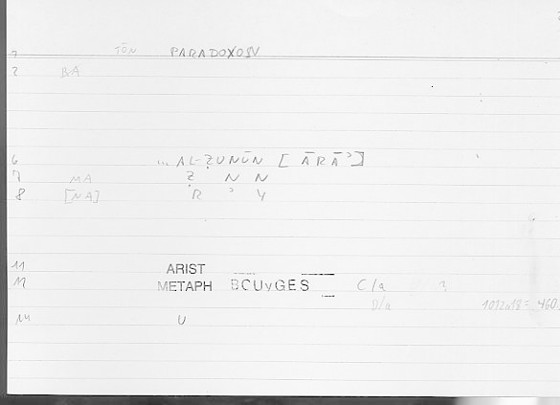 1 TŌN PARADOXOSN
2 BA
6 ... AL-ẒUNŪN [ĀRĀʾ]
7 MA Ẓ N N
8 [NA] R ʾ Y
11 ARIST
12 METAPH BOUYGES C/a
D/a 1012a18 = 460,
14 U